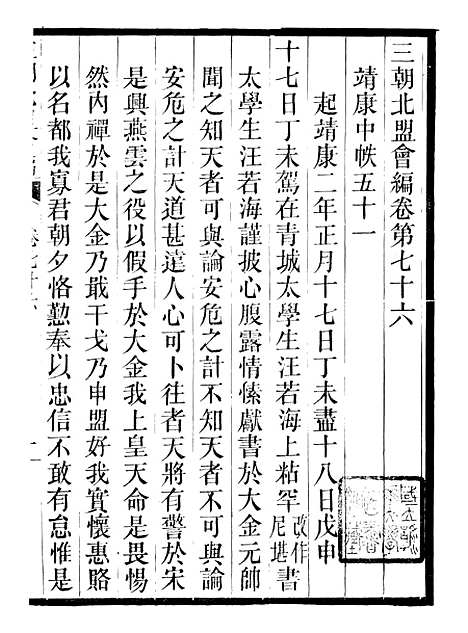 三朝北盟會編卷第七十六
靖康中帙五十一
起靖康二年正月十七日丁未盡十八日戊申
十七日丁未駕在青城太學生汪若海上粘罕改作尼堪書
太學生汪若海謹披心腹露情愫獻書於大金元帥
聞之知天者可與論安危之計不知天者不可與論
安危之計天道甚遠人心可卜往者天將有警於宋
是興燕雲之役以假手於大金我上皇天命是畏惕
然內禪於是大金乃戢干戈乃申盟好我實懷惠賂
以名都我寡君朝夕恪懃奉以忠信不敢有怠惟是
卷七十六